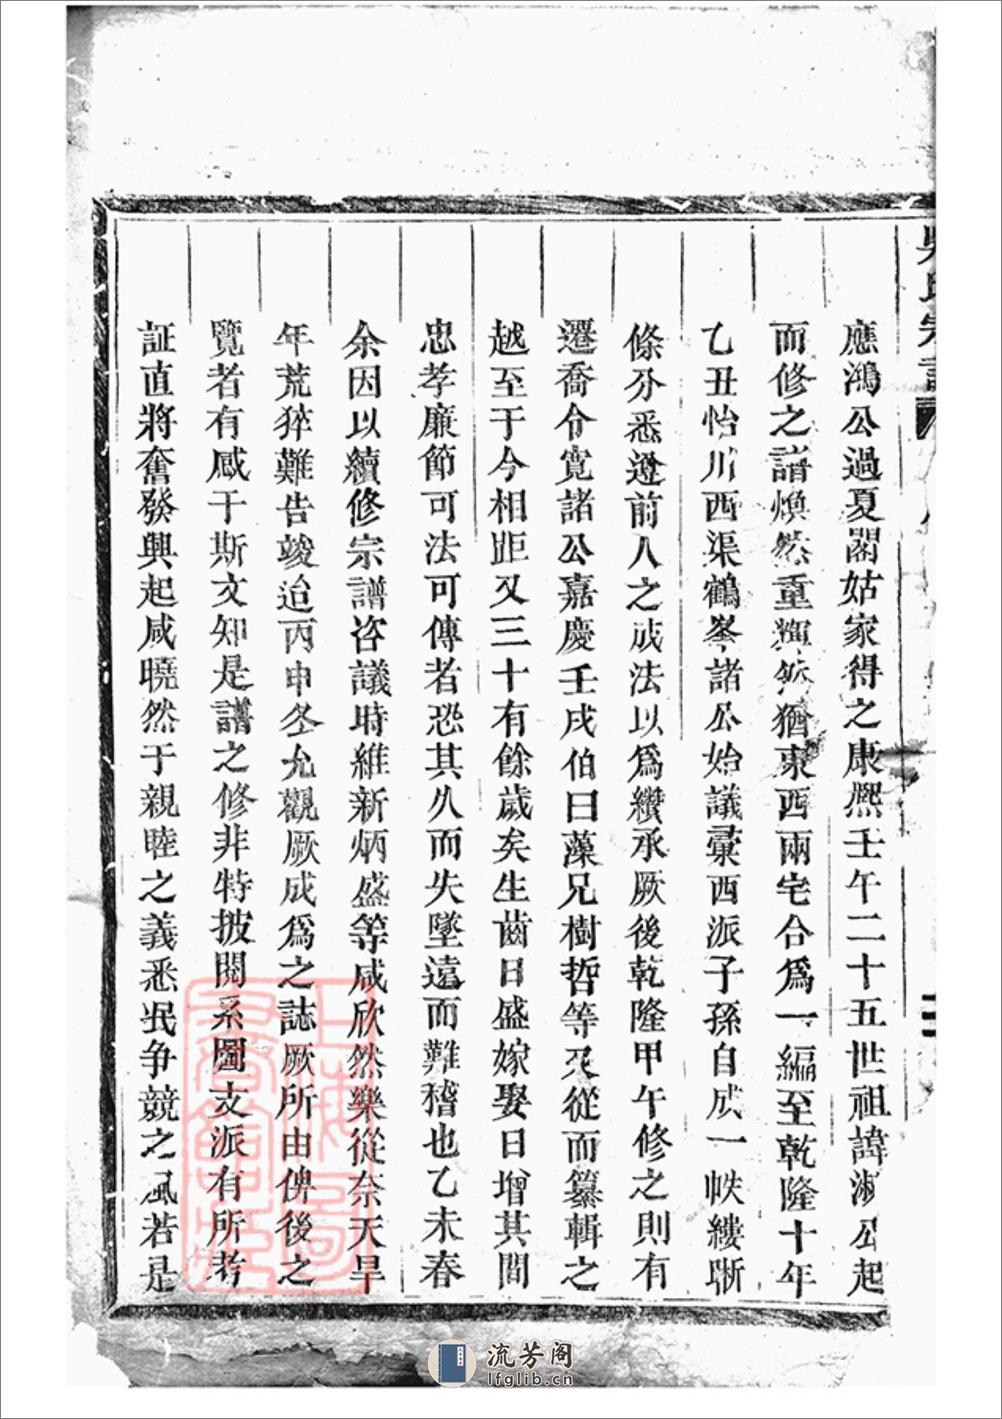 吳氏宗譜
應鴻公過夏閣姑家得之康熙壬午二十五世祖諱淑公起
而修之譜煥然重輝然猶東西兩宅合爲一編至乾隆十年
乙丑怡川西渠鶴峯諸公始議彙西派子孫自成一帙縷晰
條分悉遵前人之成法以爲纘承厥後乾隆甲午修之則有
遷喬令寬諸公嘉慶壬戌伯曰藻兄樹哲等又從而纂輯之
越至于今相距又三十有餘歲矣生齒日盛嫁娶日增其間
忠孝廉節可法可傳者恐其久而失墜遠而難稽也乙未春
余因以續修宗譜咨議時維新炳盛等咸欣然樂從奈天旱
年荒猝難告竣迨丙申冬允觀厥成爲之誌厥所由俾後之
覽者有感于斯文知是譜之修非特披閱系圖支派有所考
証直將奮發興起咸曉然于親睦之義悉泯争競之風若是
上海圖書館藏
流芳阁
lfglib.cn